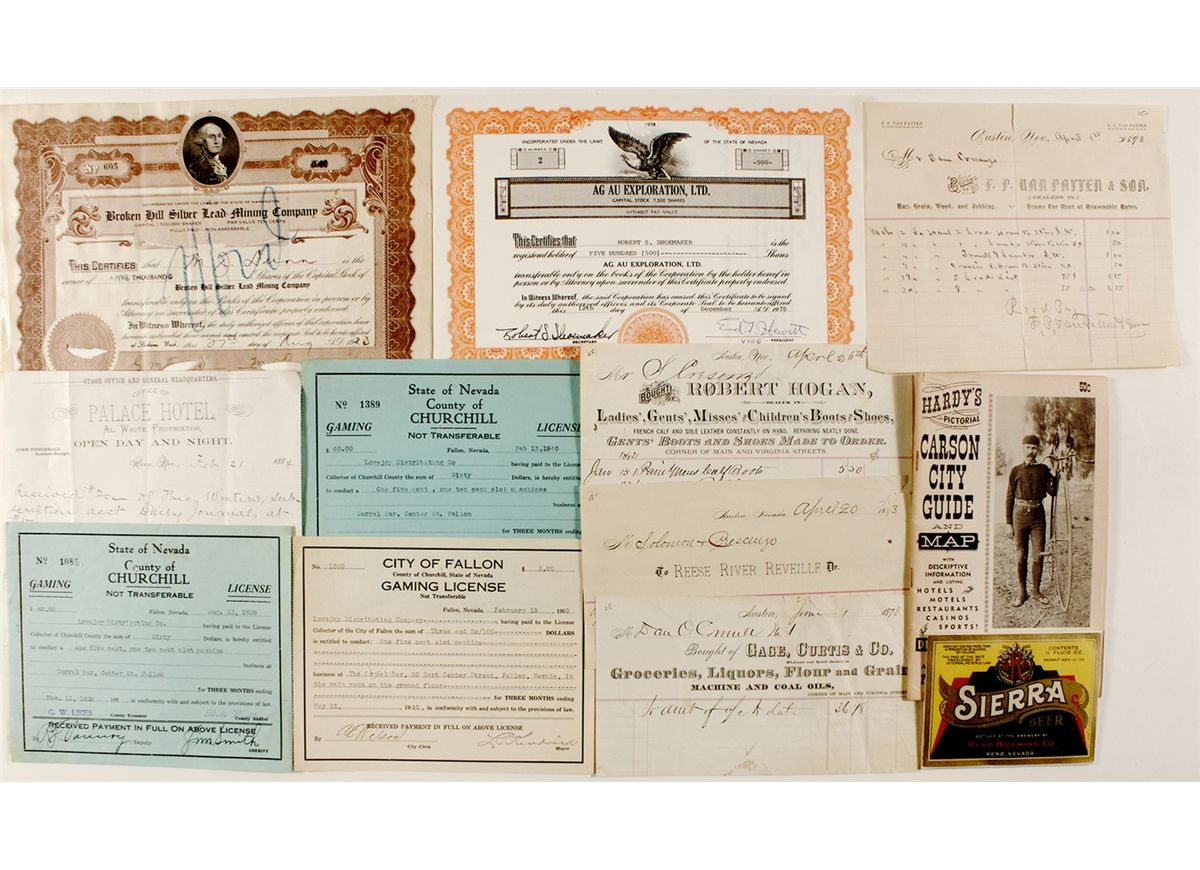 No 605
INCORPORATED UNDER THE LAWS OF THE STATE OF WASHINGTON
Broken Hill Silver Lead Mining Company
CAPITAL 1,500,000 SHARES PAR VALUE TEN CENTS
FULLY PAID - NON-ASSESSABLE
THIS CERTIFIES that
owner of FIVE THOUSAND Shares of the Capital Stock of
Broken Hill Silver Lead Mining Company
transferable only on the books of the Corporation in person or by
Attorney on surrender of this Certificate properly endorsed.
In Witness Whereof, the duly authorized officers of this corporation have
hereunto subscribed their names and caused the corporate seal to be hereto affixed
at Spokane, Wash. this 27th day of Aug A.D. 1923
1978
INCORPORATED UNDER THE LAWS OF THE STATE OF NEVADA
NUMBER 2 SHARES -500-
AG AU EXPLORATION, LTD.
CAPITAL STOCK 7,500 SHARES
WITHOUT PAR VALUE
This Certifies that ROBERT S. SHOEMAKER is the
registered holder of FIVE HUNDRED [500] Shares
AG AU EXPLORATION, LTD.
transferable only on the books of the Corporation by the holder hereof in
person or by Attorney upon surrender of this Certificate properly endorsed.
In Witness Whereof, the said Corporation has caused this Certificate to be signed
by its duly authorized officers and its Corporate Seal to be hereunto affixed
this 12th day of December A.D. 1978
Robert S. Shoemaker
SECRETARY
VICE - PRESIDENT
F. P. VAN PATTEN F. A. VAN PATTEN
Austin, Nev. April 1st 1893
Mr Sam Crescenzo
F. P. VAN PATTEN & SON,
DEALERS IN
Hay, Grain, Wood, and Jobbing. Teams For Rent at Reasonable Rates.
Rec'd Pay
F P Van Patten & Son
STAGE OFFICE AND GENERAL HEADQUARTERS.
OFFICE OF
PALACE HOTEL,
AL. WHITE, PROPRIETOR,
OPEN DAY AND NIGHT.
JOHN FITZGERALD, Business Manager
Reno, Nev., Feb 21 1884
Received $20 of Theo. Winters, sub-
scription acct Daily Journals at
State of Nevada
No 1389 County of
CHURCHILL
GAMING NOT TRANSFERABLE LICENSE
$ 60.00 Fallon, Nevada, Feb 13, 1940
Lovejoy Distributing Co having paid to the License
Collector of Churchill County the sum of Sixty Dollars, is hereby entitled
to conduct a One five cent, one ten cent slot machines
business at
Corral Bar, Center St. Fallon
for THREE MONTHS ending
Austin, Nev. April 26th
Mr S Crescenzo
BOUGHT OF ROBERT HOGAN,
DEALER IN
Ladies', Gents', Misses' and Children's Boots and Shoes,
FRENCH CALF AND SOLE LEATHER CONSTANTLY ON HAND. REPAIRING NEATLY DONE.
GENTS' BOOTS AND SHOES MADE TO ORDER.
CORNER OF MAIN AND VIRGINIA STREETS
1892 $
Jan 15 1 Pair Mens Calf Boots 5 50
HARDY'S 50¢
PICTORIAL
CARSON
CITY
GUIDE
AND
MAP
WITH
DESCRIPTIVE
INFORMATION
AND LISTING
HOTELS
MOTELS
RESTAURANTS
CASINOS
SPORTS!
Austin, Nevada April 20 1893
Mr Solomon Crescenzo
To REESE RIVER REVEILLE Dr.
State of Nevada
No 1085 County of
CHURCHILL
GAMING NOT TRANSFERABLE LICENSE
$ 60.00 Fallon, Nevada, Aug. 12, 1938
Lovejoy Distributing Co. having paid to the License
Collector of Churchill County the sum of Sixty Dollars, is hereby entitled
to conduct a One five cent, one ten cent slot machine
business at
Corral Bar, Center St. Fallon
for THREE MONTHS ending
Nov. 11, 1938 in conformity with and subject to the provisions of law.
C. W. LIKES County Treasurer County Auditor
RECEIVED PAYMENT IN FULL ON ABOVE LICENSE
By Deputy J M Smith SHERIFF
No. CITY OF FALLON $ 3.00
County of Churchill, State of Nevada
GAMING LICENSE
Not Transferable
Fallon, Nevada, February 19 1940
Lovejoy Distributing Company having paid to the License
Collector of the City of Fallon the sum of Three and No/100 DOLLARS
is entitled to conduct: One five cent slot machine
business at The Bar, 50 East Center Street, Fallon, Nevada, in
the main room on the ground floor for THREE MONTHS ending
May 18, 1940, in conformity with and subject to the provisions of law.
RECEIVED PAYMENT IN FULL ON ABOVE LICENSE
By City Clerk Mayor
Austin, June 1 187
Mr Dan O'Connell
Bought of GAGE, CURTIS & CO.
Wholesale and Retail Dealers in
Groceries, Liquors, Flour and Grain
MACHINE AND COAL OILS,
CORNER OF MAIN AND VIRGINIA STREET
DOES NOT CONTAIN MORE THAN
TAX PAID AT THE RATE
PRESCRIBED BY
INTERNAL REVENUE LAW.
CONTENTS
11 FLUID OZ.
R
SIERRA
BEER
BOTTLED AT THE BREWERY BY
RENO BREWING CO.
RENO, NEVADA.